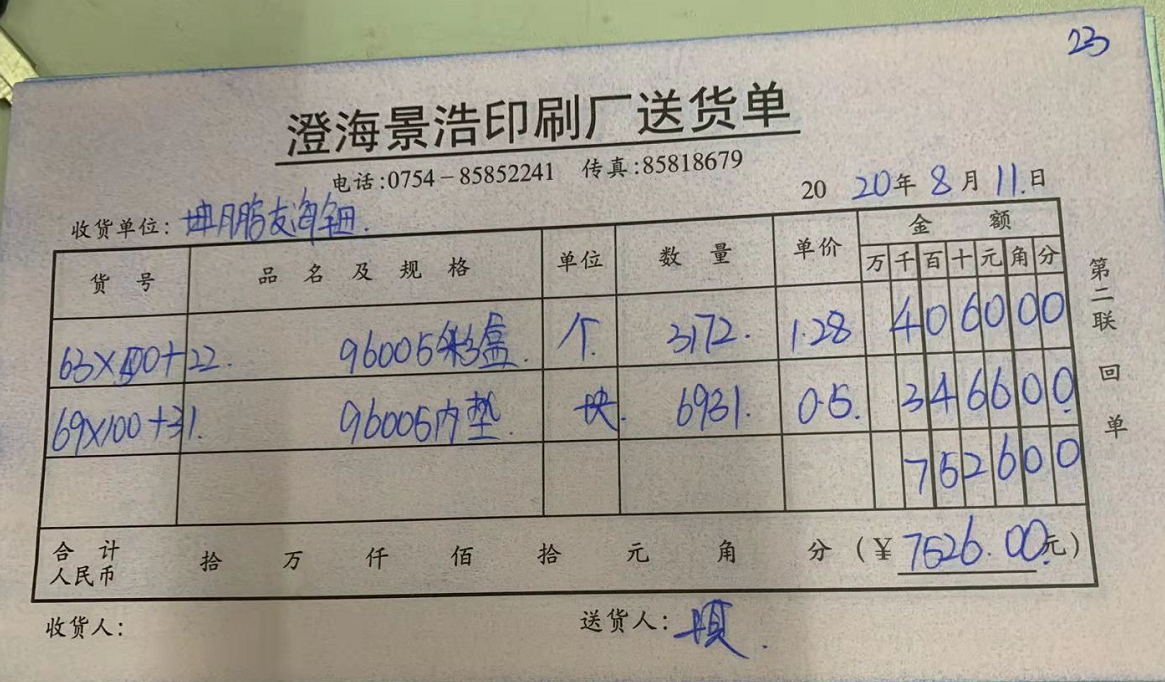 23
澄海景浩印刷厂送货单
电话:0754-85852241 传真:85818679
2020年8月11日
收货单位:
货号 品名及规格 单位 数量 单价 金额
万 千 百 十 元 角 分
63×100+22. 96005彩盒 个. 3172. 1.28 406000
69×100+31. 96005内垫. 块. 6931. 0.5. 346600
752600
合计人民币 拾 万 仟 佰 拾 元 角 分 (¥7526.00元)
收货人: 送货人:
第二联 回单